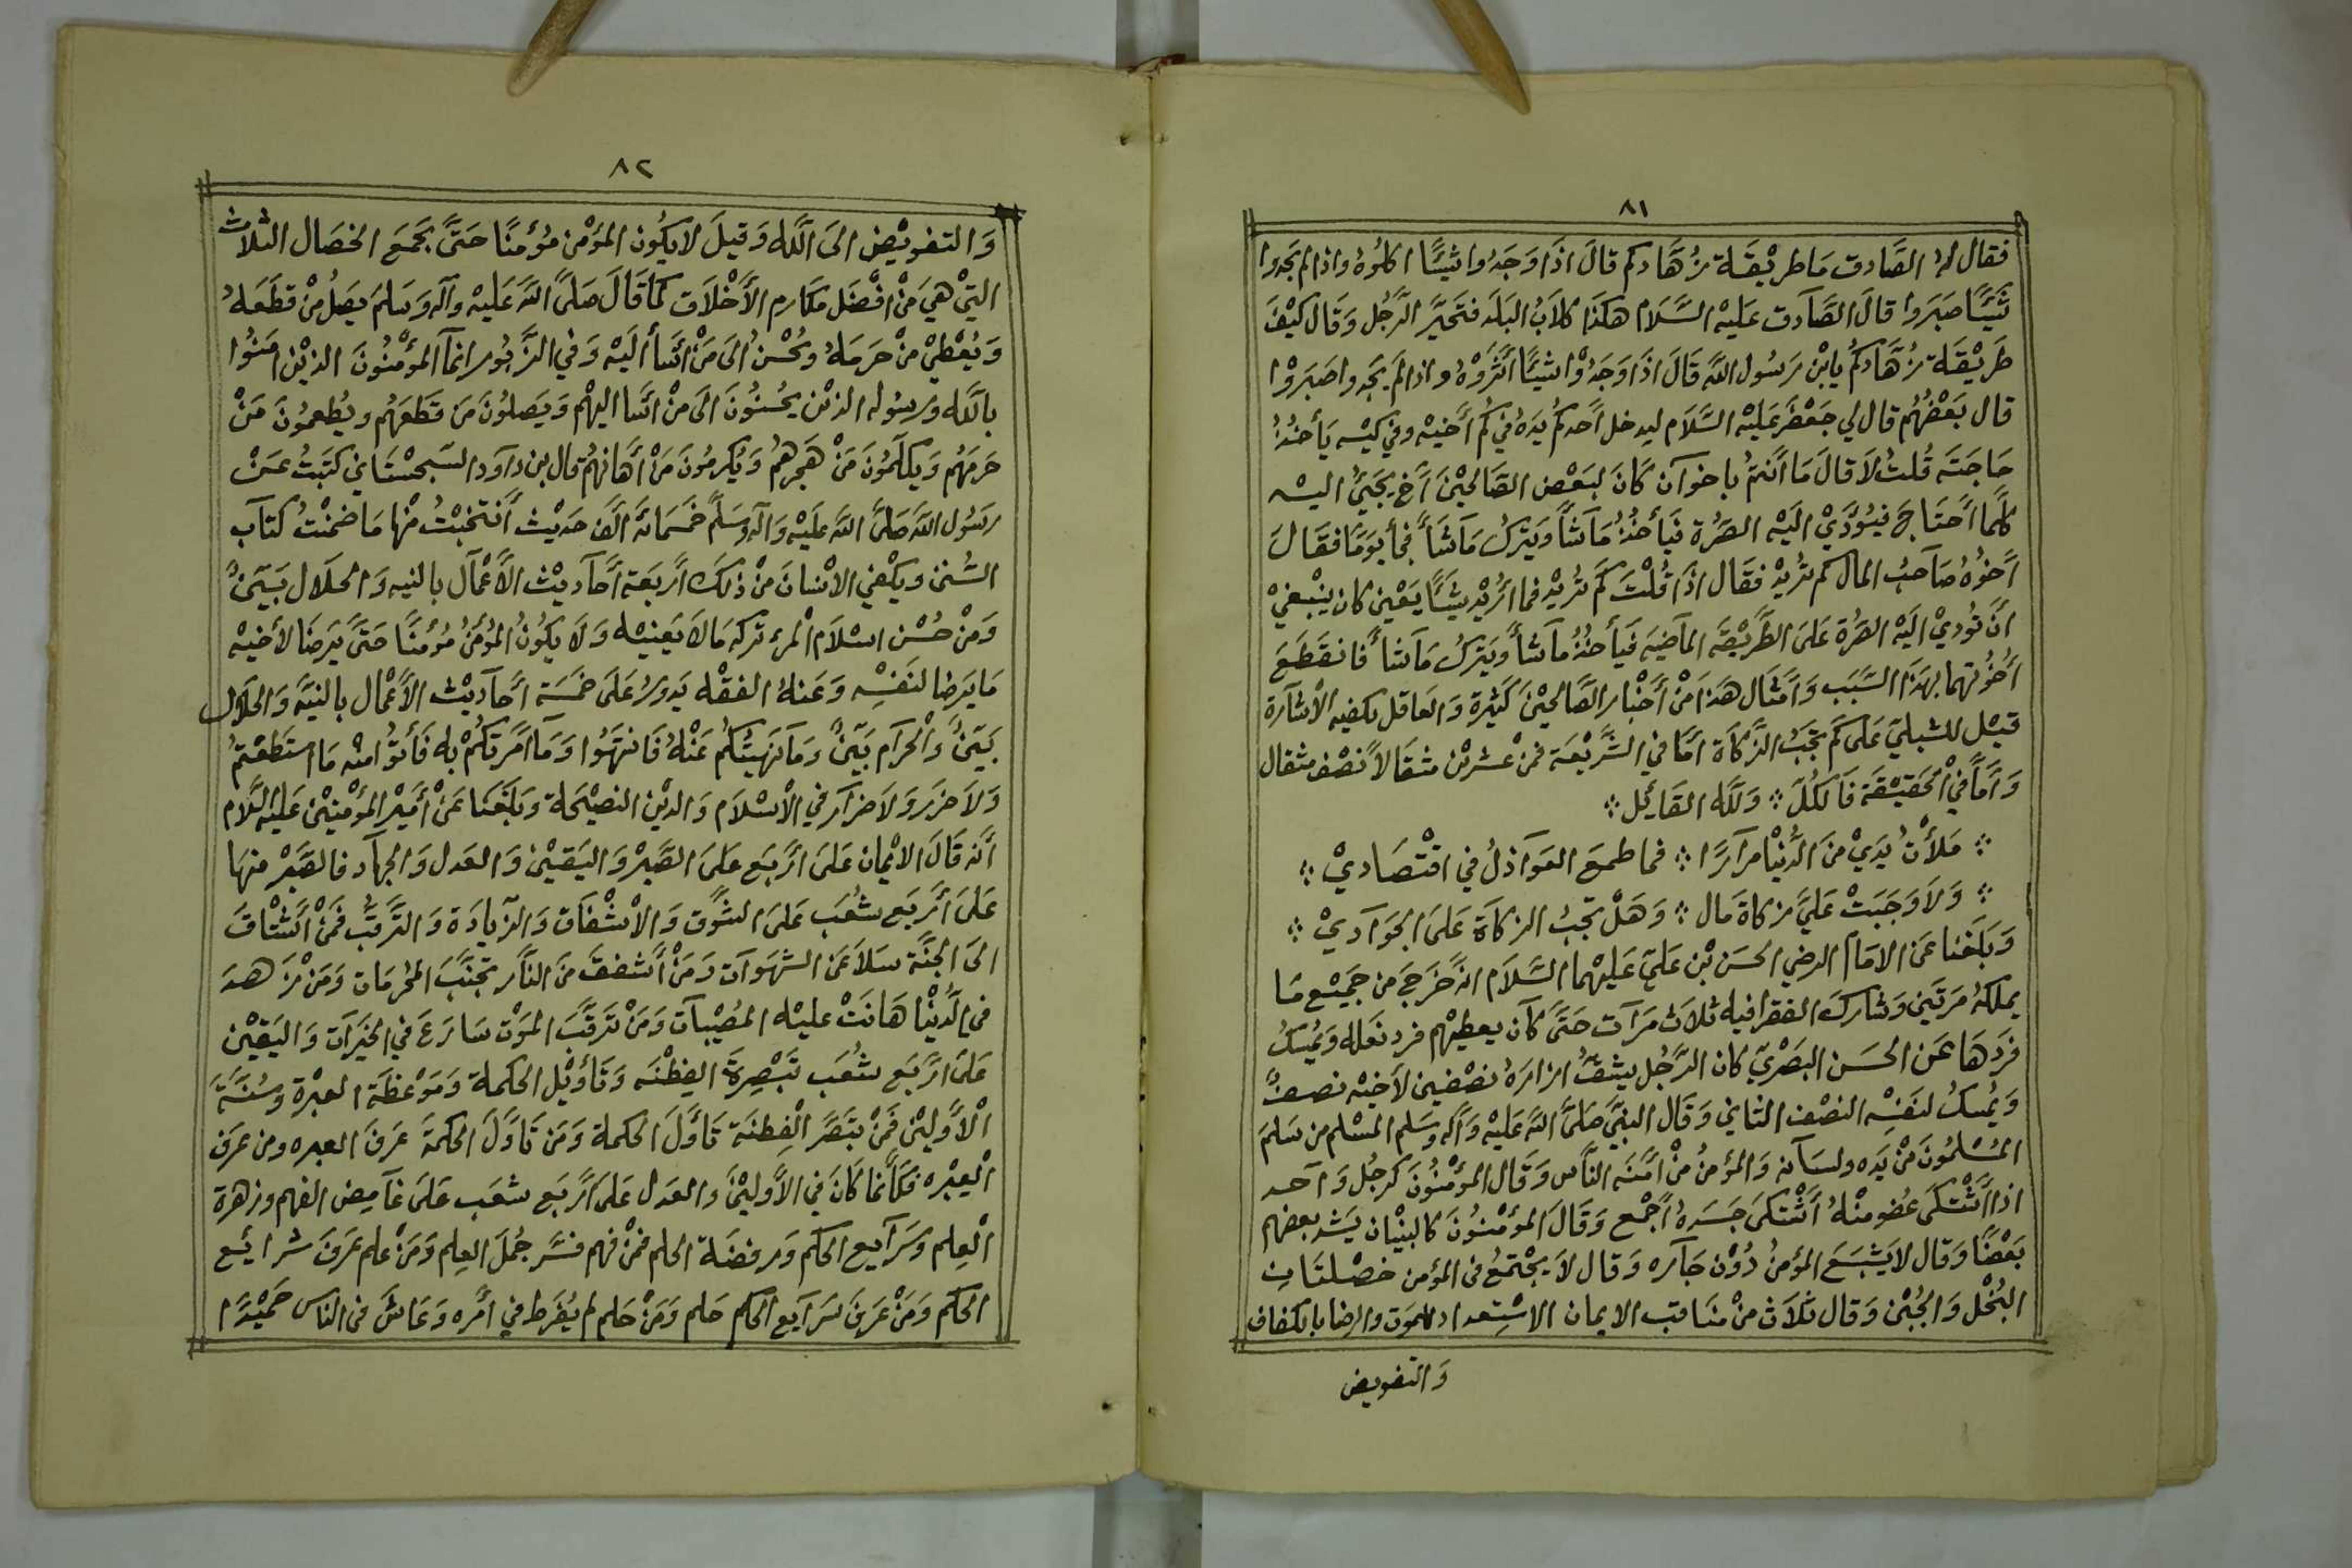 ٨١
فقال له الصَّادق مَا طريْقَة زُهَّادكم قالَ اذَا وَجَدُوا شيئًا اكلُوهُ واذا لم يَجدوا
شَيئًا صَبَروا قالَ الصَّادق عَليه السَّلَام هكَذا كلاَبُ البَلَد فتَحيَّر الرَّجُل وَقَال كيْفَ
طَريْقَة زُهَّادكُم يا بْن رَسُول اللّه قَالَ اذَا وَجَدُوْا شَيئًا أثَرُوْهُ واذا لَم يَجدوا صَبَرُوْا
قال بَعْضُهُم قال لي جَعْفَر عَليْه السَّلَام ليدخل أحَدكُم يَدهُ في كُم أخيْه وفي كيْسه يَأخذُ
حَاجَتَه قُلتُ لاَ قالَ مَا أنتمُ باخوَان كَانَ لبَعْض الصَالحيْنَ أخ يَجَيُ اليْه
كلَّما أحتَاجَ فيُؤدّيْ الَيْه الصّرُة فيَأخُذُ مَا شَأ ويَتركُ مَا شَأ فجَأ يَومًا فقَالَ
أخوُهُ صَاحبُ المال كم تُريدْ فقَال اذَا قُلْتَ كَم تُريدْ فما اُريْد شَيئًا يَعْني كان ينْبَغيْ
أنَ تُوديْ اليْه الصّرُة عَلىَ الطَّريْقَه المَاضيَه فيَأخذُ مَا شأ وَيَتركُ مَا شأ فانقَطَعَ
أخُوّتهما بهَذا السَّبَب وَأمثَال هَذا مِنْ أخْبَار الصَّالحيْنَ كَثيْرة وَالعَاقل يكفيه الْاشَارة
قيْل للشبليّ عَلى كَم تَجَبُ الزَّكَاة أمّا في الشَّريْعَة فمنْ عشريْن مثقَالاً نصْف مثقال
وَأمّا فيْ الحَقيْقَة فَالكُلّ ⁘ وَللّه القَائِل ⁘
⁘ مَلأتْ يَديْ مِنَ الدُّنْيا مرَارًا ⁘ فما طَمعَ العَوَاذلُ في اقتْصَاديْ ⁘
⁘ وَلاَ وَجَبَتْ عَليَّ زكاة مَال ⁘ وَهَلْ تَجبُ الزكَاة عَلىَ الجَوَاديْ ⁘
وَبَلَغَنا عَن الامَام الرضي الحَسَن بْن عَليّ عَليْهما السَّلَام انّه خَرَجَ من جَميْع مَا
يملكهُ مَرتَين وَشارَكَ الفقرا فيه ثلاَث مَرَات حَتّىَ كَان يعطيْهم فرد نَعله وَيمُسكُ
فردهَا عَن الحسَن البَصْريّ كان الرَّجُل يشقُّ ازارَهُ نصْفين لأخيْه نصفً
وَيمُسكُ لنَفْسه النصْف الثاني وَقَال النبّي صَلىَّ اللّه عَليْه وَآله وسَلم المسْلم من سَلمَ
المُسْلمُونَ منْ يَده ولسَانه وَالمؤمنُ منْ أمنَهَ النَّاس وَقَال المؤمْنُونَ كرجُل وَاحد
اذا اشْتكىَ عُضو منْهُ أشْتكىَ جَسَدهُ أجْمع وَقَالَ المؤمْنُونَ كالبنْيَان يَشد بعضهم
بَعْضًا وَقال لا يَشبَعَ المؤمنُ دُوْن جَاره وَقال لاَ يجْتمعُ في المؤمن خصْلتَان
البُخل وَالجُبْن وَقال ثلَاث منْ منَاقب الايمان الاسْتعداد للموَت والرضا بالكفاف
وَالتفويض
٨٢
وَالتفويْض الىَ اللّه وَقيلَ لا يكُون المؤمْن مؤمنًا حَتىَّ يجَمعَ الخصَال الثلاث
التيْ هيَ منْ افضَل مكَارم الأخْلاَق كمَا قَالَ صَلىَّ اللّه عَليْه وآله وَسَلمَ يصَلُ منْ قَطعَهُ
وَيُعْطيْ منْ حَرمَهُ ويحُسنُ الىَ مَنْ أسَأ أليْه وَفي الزَّبُور انمآ المؤمنُونَ الذيْن امَنُوا
باللّه ورسُوله الذيْن يحُسنُونَ الىَ منْ اسَا اليهْم وَيَصلُونَ مَن قَطعَهُم ويُطعمُونَ مَنْ
حَرمَهُم وَيكلّمُونَ مَنْ هَجرهمُ وَيُكرمُونَ مَنْ أهَانهُم قال بن داوَد السَّجسْتَاني كتَبتُ عَنْ
رسُول اللّه صَلىَّ اللّه عَليْه وَآله وسَلَّم خَمسَمائة ألَف حَديْث أنتخَبْتُ منْها مَا ضمنْتُ كتَاب
السُّنن ويكفي الانْسَانَ منْ ذلكَ أربَعَة أحَاديْث الأعْمَال بالنيه وَالحلَال بَيّنً
وَمنْ حُسْن اسْلَام المرْء تركه مَا لاَ يَعنيْه وَلاَ يكُونُ المؤمنُ مُؤْمنًا حَتىَّ يَرضَا لأخيْه
مَا يَرضا لنَفْسه وَعَنهُ الفقْه يَدورُ عَلىَ خَمسَة أحَاديْث الأعْمَال بالنيَّة وَالحلَال
بَيّنُ وَالْحرَام بَيّنٌ وَمَا نَهَيتُكُم عَنْهُ فَانتهَوُا وَمَا أمَرتكُمْ به فَأتوُا منْه مَا استَطعْتمُ
وَلاَ ضرَر وَلاَ ضرَار في الْاسْلَام وَالديْن النصيْحَة وَبَلغَنا عَنْ أميْر المؤمْنيْن عَليْه السَّلام
أنّه قَالَ الايْمَان عَلىَ أربَع عَلىَ الصَّبرْ وَاليَقيْن وَالعَدل وَالجهَاد فالصَّبرْ منهَا
عَلىَ أربَع شُعَب عَلىَ الشَّوق وَالْاشْفَاق وَالزيَادَة وَالتَّرقّبْ فمَنْ اشْتَاقَ
الىَ الجنَّة سَلاَ عَن الشهَوات وَمَنْ أشفقَ منَ النَّار تجنَّبَ المحرمَات وَمَن زَهدَ
في الدُّنيْا هَانَتْ عليْه المُصْيبَات وَمَنْ تَرقَّبَ الموَتْ سَارَعَ في الخيَرات وَاليَقيْن
عَلىَ أربَع شُعَب تَبْصِرةَ الفِطْنَه وَتَأويْل الحكمة وَمَوْعظَة العبْرة وَسُنَّةَ
الْأوّليْن فمَنْ تبَصَّرَ الْفِطنَة تَأوَّلَ الحكمة وَمَن تَاوَّلَ الحكمةَ عَرفَ العبره ومن عَرفَ
الْعِبْره فكَأنما كَانَ في الأوّليْنَ وَالعَدل عَلىَ أربَع شعَب عَلىَ غَامِض الفهم وزهرة
الْعِلم وشَرَايع الحكم وَروضَة الحلم فمنْ فهم فسَّر جُمَلَ العِلم وَمَنْ علم عَرفَ شرائع
الحكم وَمَنْ عَرفَ شرَايع الحكم حَلم وَمَنْ حَلم لم يُفَرط في أمَره وَعَاشَ في الناس حَميْدًا